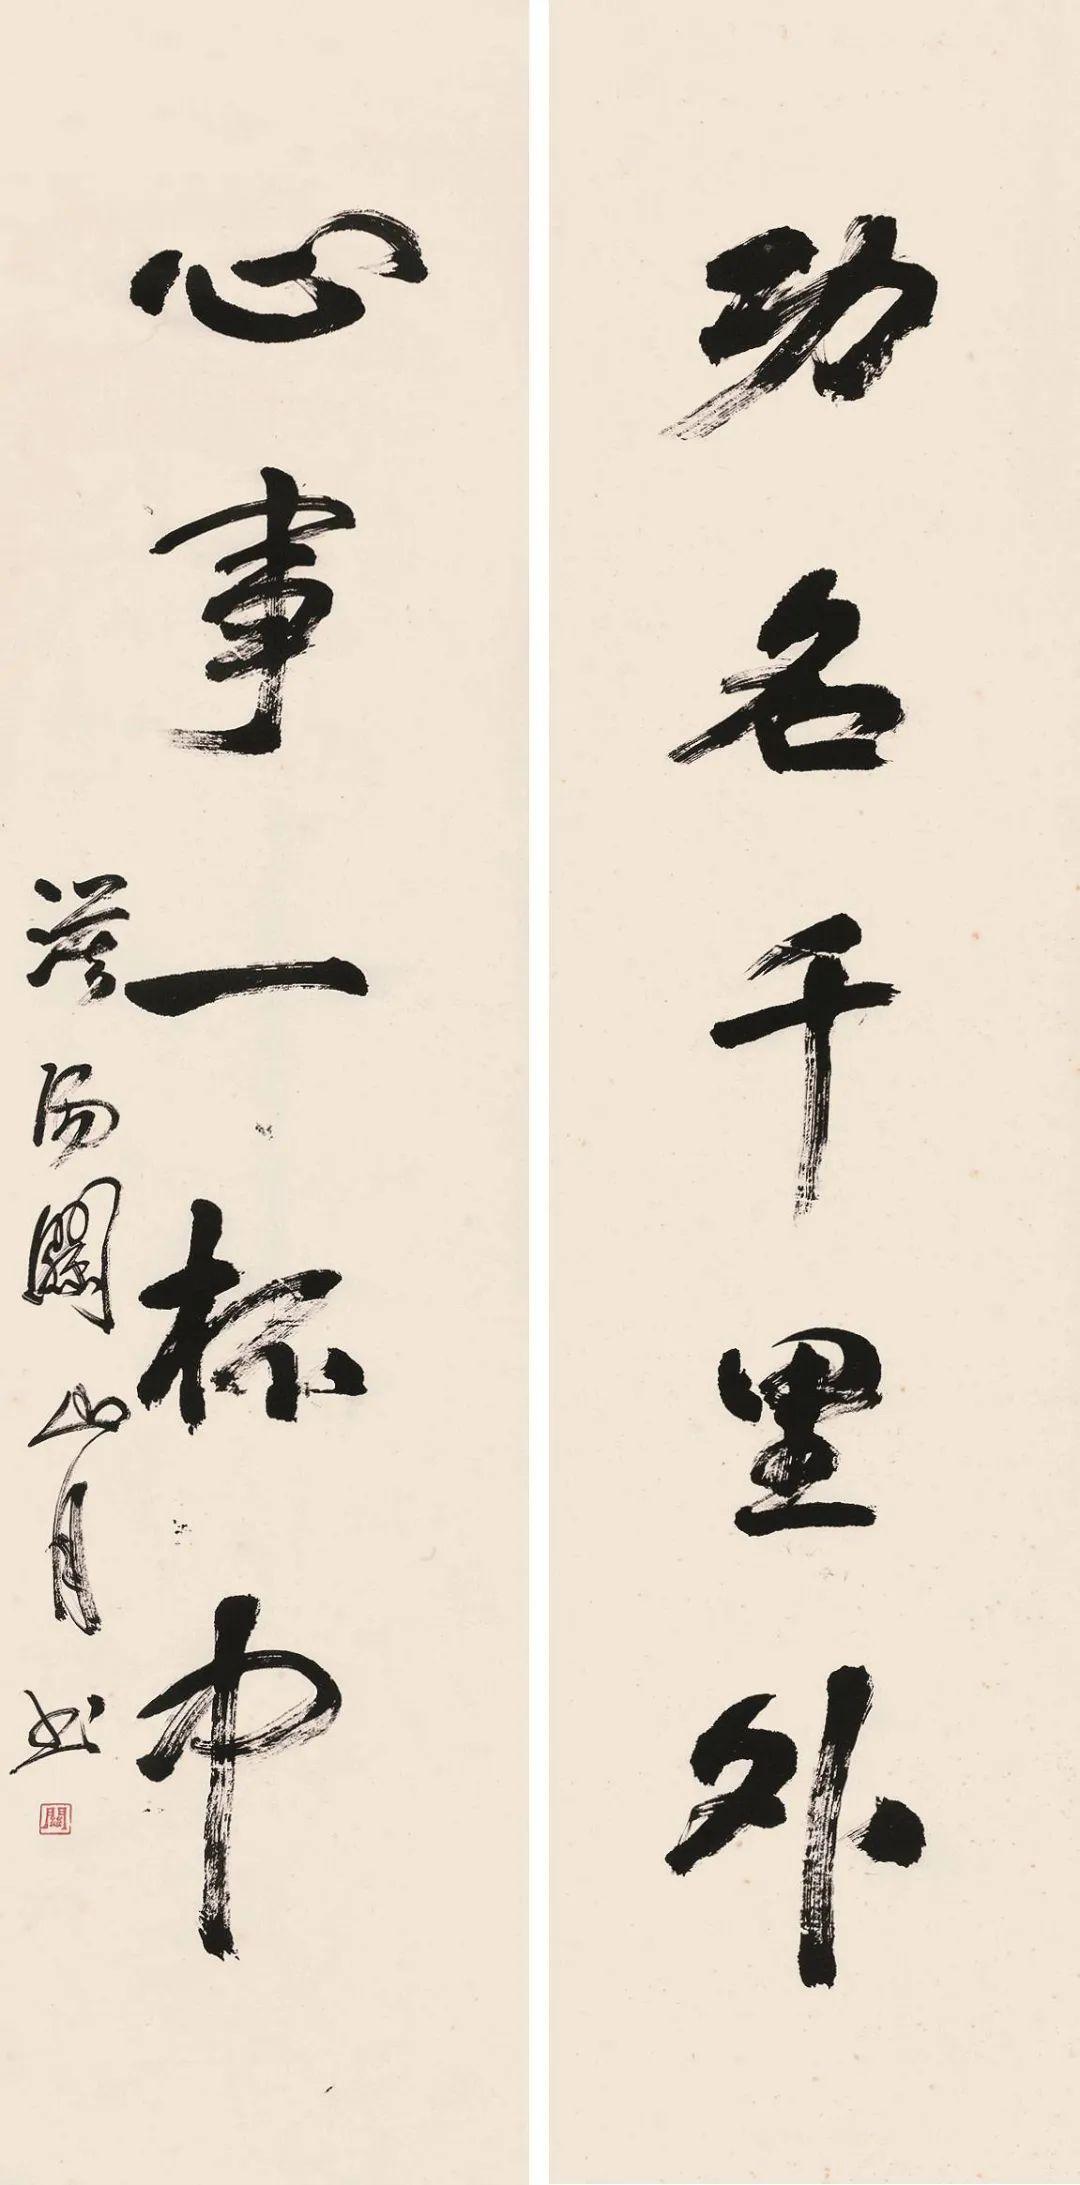 功名千里外
心事一杯中
漠阳关山月书
關